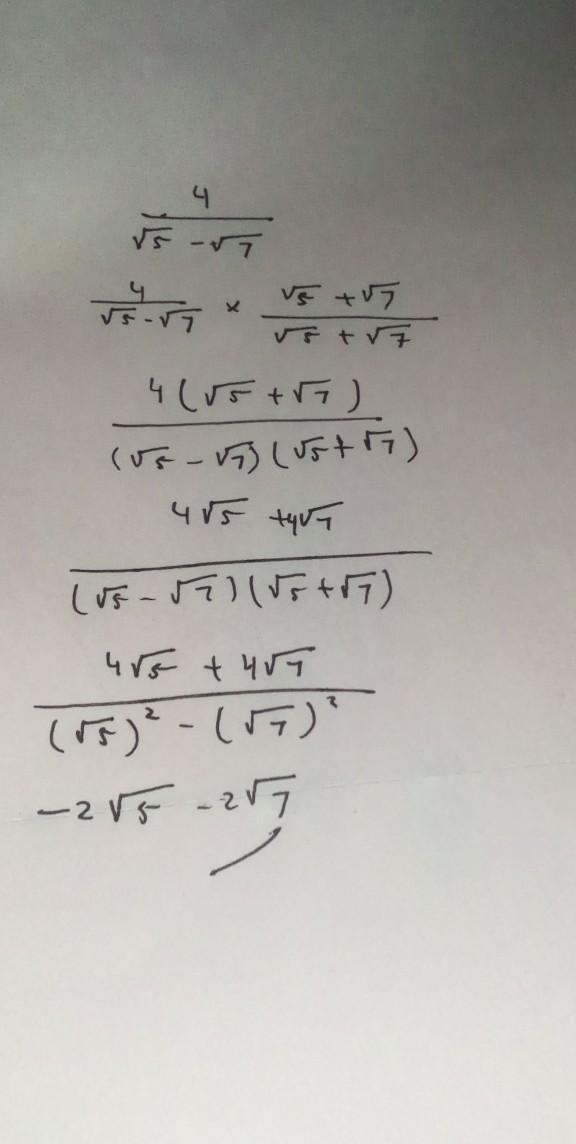 4
√5 - √7
4 × √5 + √7
√5 - √7 √5 + √7
4 (√5 + √7)
(√5 - √7) (√5 + √7)
4√5 + 4√7
(√5 - √7) (√5 + √7)
4√5 + 4√7
(√5)² - (√7)²
-2√5 - 2√7